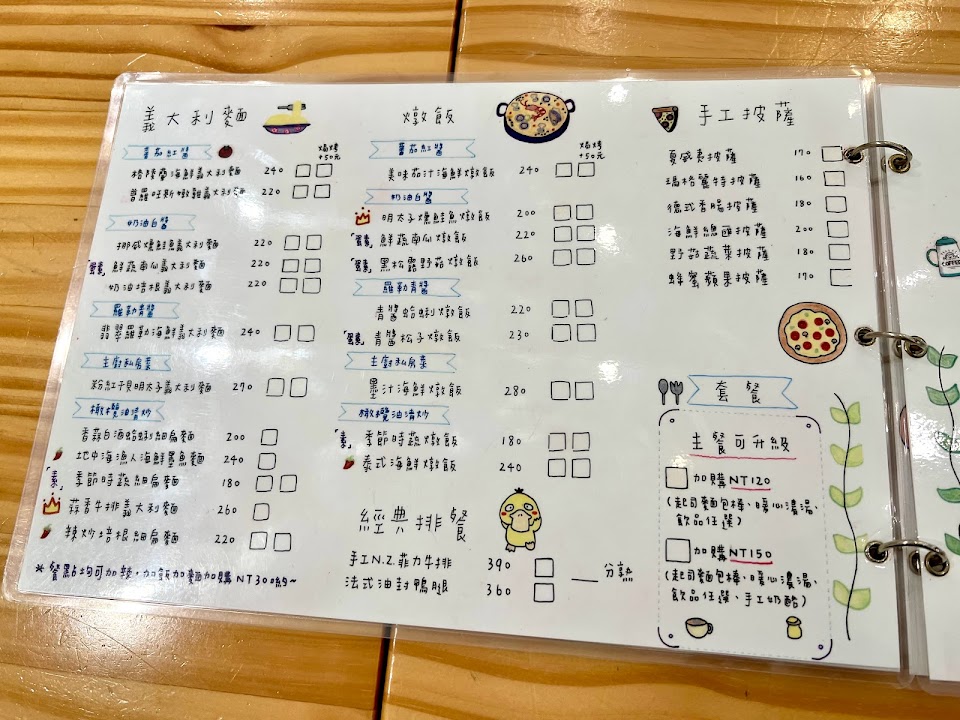 義大利麵
番茄紅醬
焗烤
+50元
格陵蘭海鮮義大利麵 240
普羅旺斯嫩雞義大利麵 220
奶油白醬
挪威燻鮭魚義大利麵 220
「蛋素」鮮蔬南瓜義大利麵 220
奶油培根義大利麵 220
羅勒青醬
翡翠羅勒海鮮義大利麵 240
主廚私房菜
粉紅干貝明太子義大利麵 270
橄欖油清炒
香蒜白酒蛤蜊細扁麵 200
地中海漁人海鮮墨魚麵 240
「素」季節時蔬細扁麵 180
蒜香牛排義大利麵 260
辣炒培根細扁麵 220
*餐點均可加辣,加飯加麵加購NT30喲~
燉飯
蕃茄紅醬
焗烤
+50元
美味茄汁海鮮燉飯 240
奶油白醬
明太子燻鮭魚燉飯 200
「蛋素」鮮蔬南瓜燉飯 220
「蛋素」黑松露野菇燉飯 260
羅勒青醬
青醬蛤蜊燉飯 220
「蛋素」青醬松子燉飯 230
主廚私房菜
墨汁海鮮燉飯 280
橄欖油清炒
「素」季節時蔬燉飯 180
泰式海鮮燉飯 240
經典排餐
手工N.Z.菲力牛排 390 __分熟
法式油封鴨腿 360
手工披薩
夏威夷披薩 170
瑪格麗特披薩 160
德式香腸披薩 180
海鮮總匯披薩 200
野菇蔬菜披薩 180
蜂蜜蘋果披薩 170
套餐
主餐可升級
加購NT120
(起司麵包棒、暖心濃湯、
飲品任選)
加購NT150
(起司麵包棒、暖心濃湯、
飲品任選、手工奶酪)
COFFEE